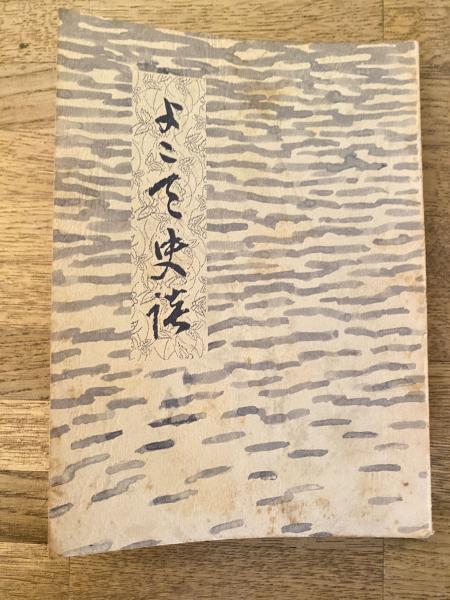 よこて史談